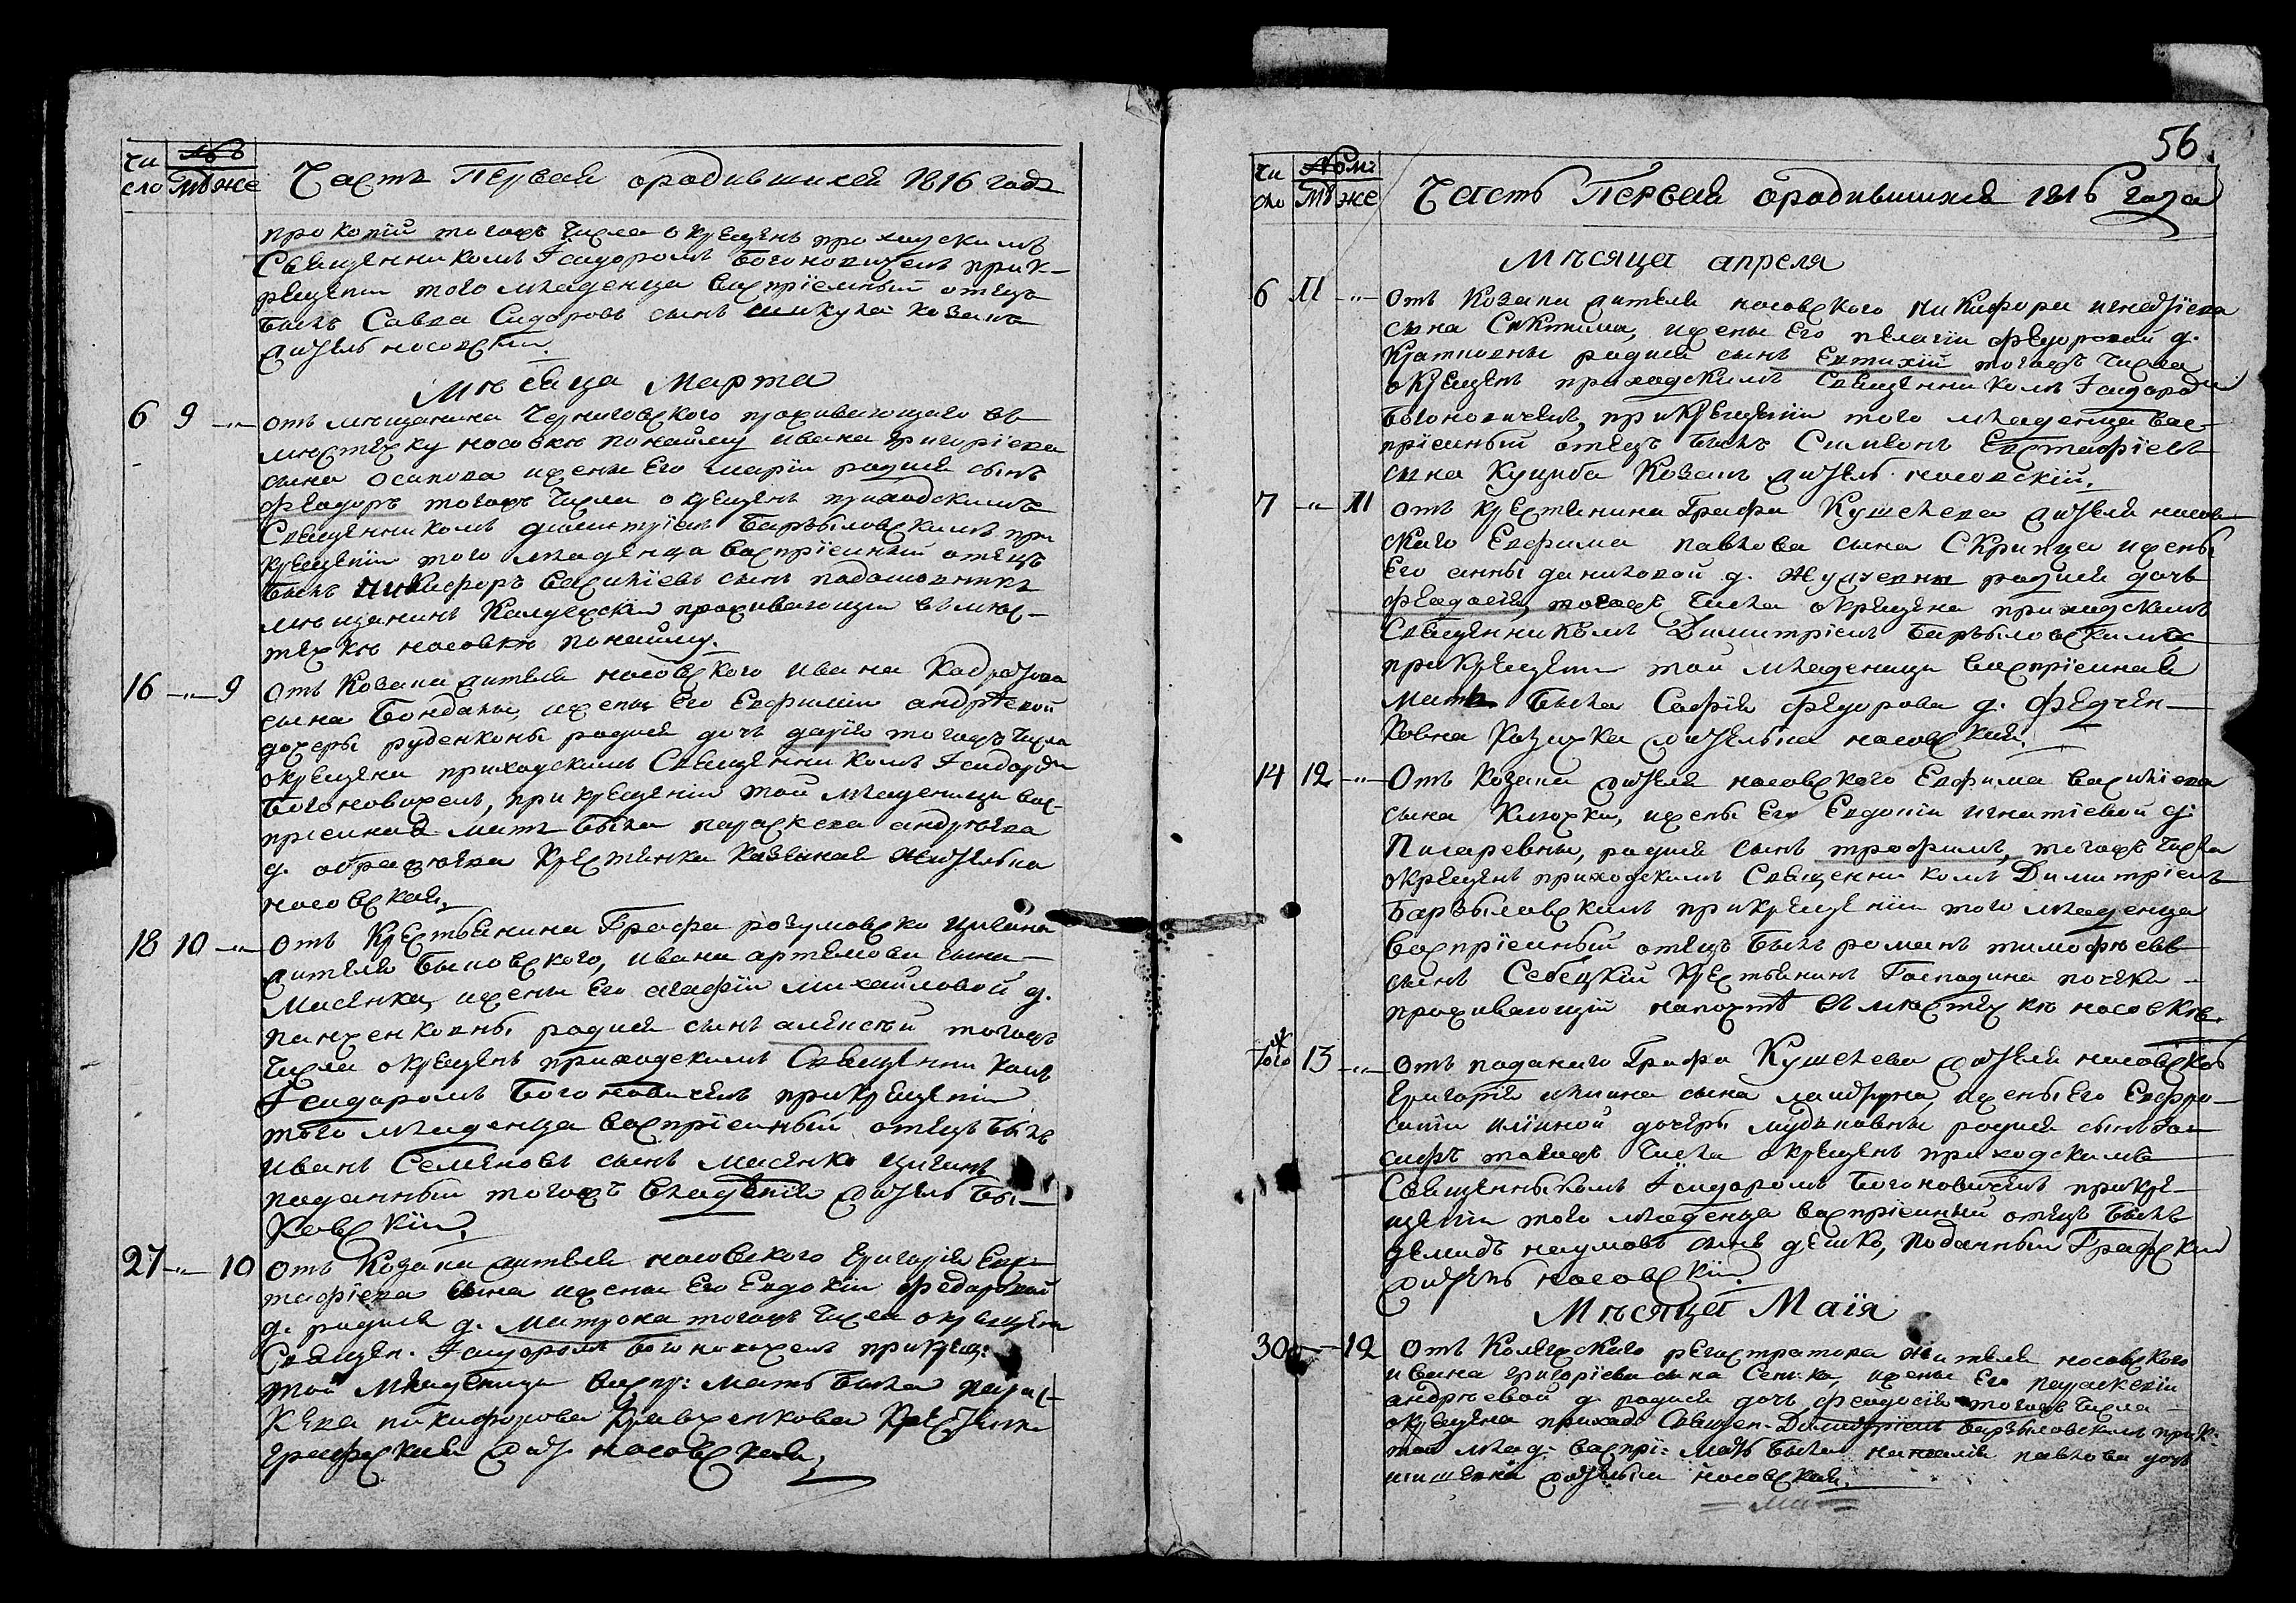 чи сло №ъ Мꙋ же Часть Первая ородившихся 1816 года
прокопій тогожъ числа окрещенъ приходскимъ
Священникомъ Ісидоромъ Богоновичемъ прик-
рещеніи того младенца воспріемный отецъ
былъ Савва Сидоровъ сынъ шикула козакъ
житель носовскій.
Мѣсяца Марта
6 9 -"- отъ мещанина Черниговского проживающаго въ
мѣстечку носовкѣ понайму ивана григоріева
сына осипова ижены Его маріи родися сынъ
феодоръ тогожъ числа окрещенъ приходскимъ
Священникомъ диамитріемъ Барвыловскимъ при
крещеніи того младенца воспріемный отецъ
былъ никифоръ василіевъ сынъ подошовникъ
мещанинъ Калужскій проживающи въ мѣс-
течкѣ носовкѣ понайму.
16 -"- 9 отъ козака жителя носовского ивана
сына Бондаля, ижены Его Евфиміи андрѣевой
дочеры руденковны родися дочь дарія тогожъ числа
окрещена приходскимъ Священникомъ Ісидоро
Богоновичемъ, при крещеніи той младеници вос-
пріемная мать была параскева андрѣева
д. крестянка казенная жителька
носовская.
18 10 -"- отъ Крестьянина Графа розумовско цигана
жителя быковского, ивана артемова сына
Мисенка, ижены Его агафіи михайловой д.
панченковны родися сынъ алексій тогожъ
числа окрещенъ приходскимъ Священникомъ
Ісидоромъ Богоновичемъ прикрещеніи
того младенца воспріемный отецъ былъ
иванъ Семеновъ сынъ мисенко циганъ
поданный тогожъ владенія житель бы-
ковскій.
27 -"- 10 отъ Козака жителя носовского григорія Евс-
тафіева сына ижены Его Евдокіи Федоровой
д. родися д. матрона тогожъ числа окрещена
Священ. Ісидоромъ богоновичемъ прикрещ:
той младеници воспр: мать была парас-
кева никифорова Кравченкова Крестянка
графская жит носовская.
56.
чи сло Ном: Мꙋ же Часть Первая ородившихся 1816 года
Мѣсяца апреля
6 11 -"- отъ Козака жителя носовского никифора игнатіева
сына ижены Его пелагіи федоровой д.
родися сынъ Евтихій тогожъ числа
окрещенъ приходскимъ Священникомъ Ісидоро
Богоновичемъ, прикрещеніи того младенца вос-
пріемный отецъ былъ Симеонъ Евстафіевъ
сына Куцыба Козакъ житель носовскій.
7 -"- 11 отъ крестянина Графа Кушелева жителя носов-
ского Евфима павлова сына Скрипца ижены
Его анны даниловой д. родися дочь
феодосія, тогожъ числа окрещена приходскимъ
Священникомъ Димитріемъ Барвыловскимъ
прикрещеніи той младеници воспріемная
мать была Софія федорова д. Федчен-
ковна Козачка жителька носовская.
14 12 -"- Отъ козака жителя носовского Евфима василіева
сына Килочки, ижены Его Евдокіи игнатіевой д:
Писаревны, родися сынъ трофимъ, тогожъ числа
окрещенъ приходскимъ Священникомъ Димитріемъ
Барвыловскимъ прикрещеніи того младенца
воспріемный отецъ былъ романъ тимофѣевъ
сынъ Себецкій крестьянинъ Господина почека
проживающій напочтѣ въ мѣстечкѣ носовкѣ.
того ж 13 -"- отъ поданого Графа Кушелева жителя носовског
григорія илина сына ландрука, ижены Его Евфро-
синіи иліиной дочеры родися сынъ іо-
сифъ тогожъ числа окрещенъ приходскимъ
Священныкомъ Ісидоромъ Богоновичемъ прикре-
щеніи того младенца воспріемный отецъ былъ
демидъ наумовъ сынъ дешко, поданный Графскій
житель носовскій.
Мѣсяца Маія
30 -"- 12 отъ Колежского регистратора жителя носовского
ивана григоріева сына Сенька, ижены Его параскевіи
андрѣевой д. родися дочь феодосія тогожъ числа
окрещена приход Священ. Димитріемъ Барвыловскимъ прик:
той млад: воспрі: мать была наталія павлова дочь
жителька носовская.